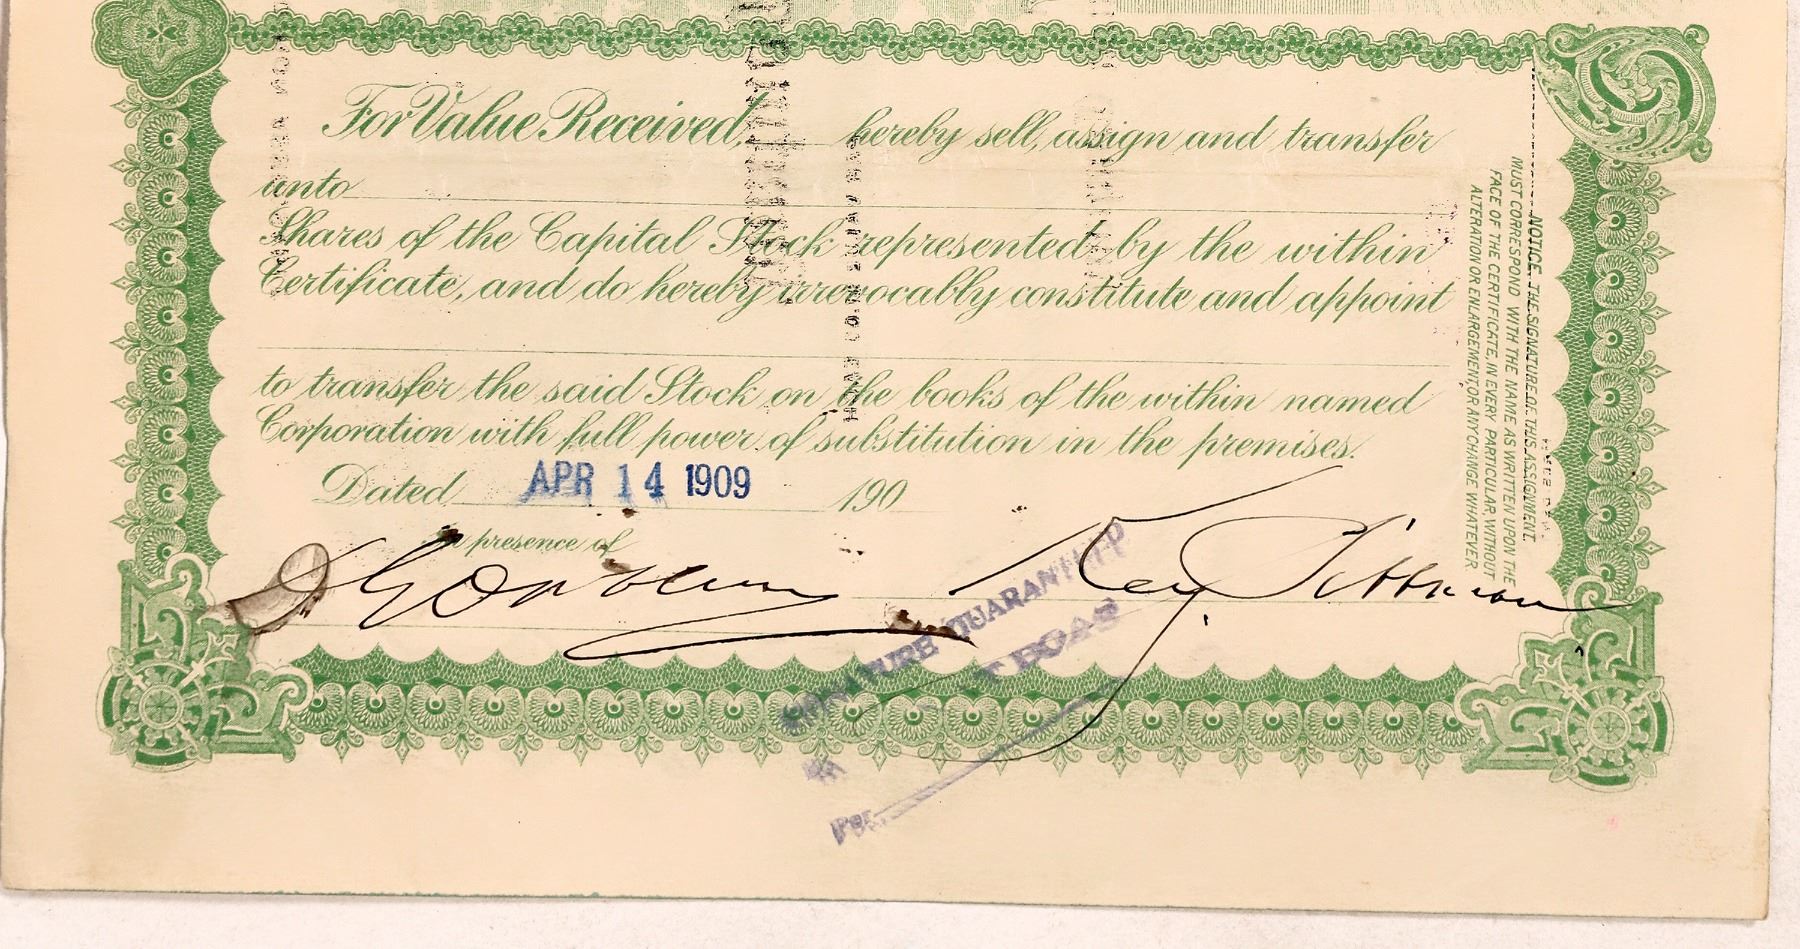 For Value Received, hereby sell, assign and transfer
unto
Shares of the Capital Stock represented by the within
Certificate, and do hereby irrevocably constitute and appoint
to transfer the said Stock on the books of the within named
Corporation with full power of substitution in the premises.
Dated APR 14 1909 190
In presence of
SIGNATURE GUARANTEED
BOAS
Per
NOTICE, THE SIGNATURE OF THIS ASSIGNMENT.
MUST CORRESPOND WITH THE NAME AS WRITTEN UPON THE
FACE OF THE CERTIFICATE, IN EVERY PARTICULAR, WITHOUT
ALTERATION OR ENLARGEMENT, OR ANY CHANGE WHATEVER